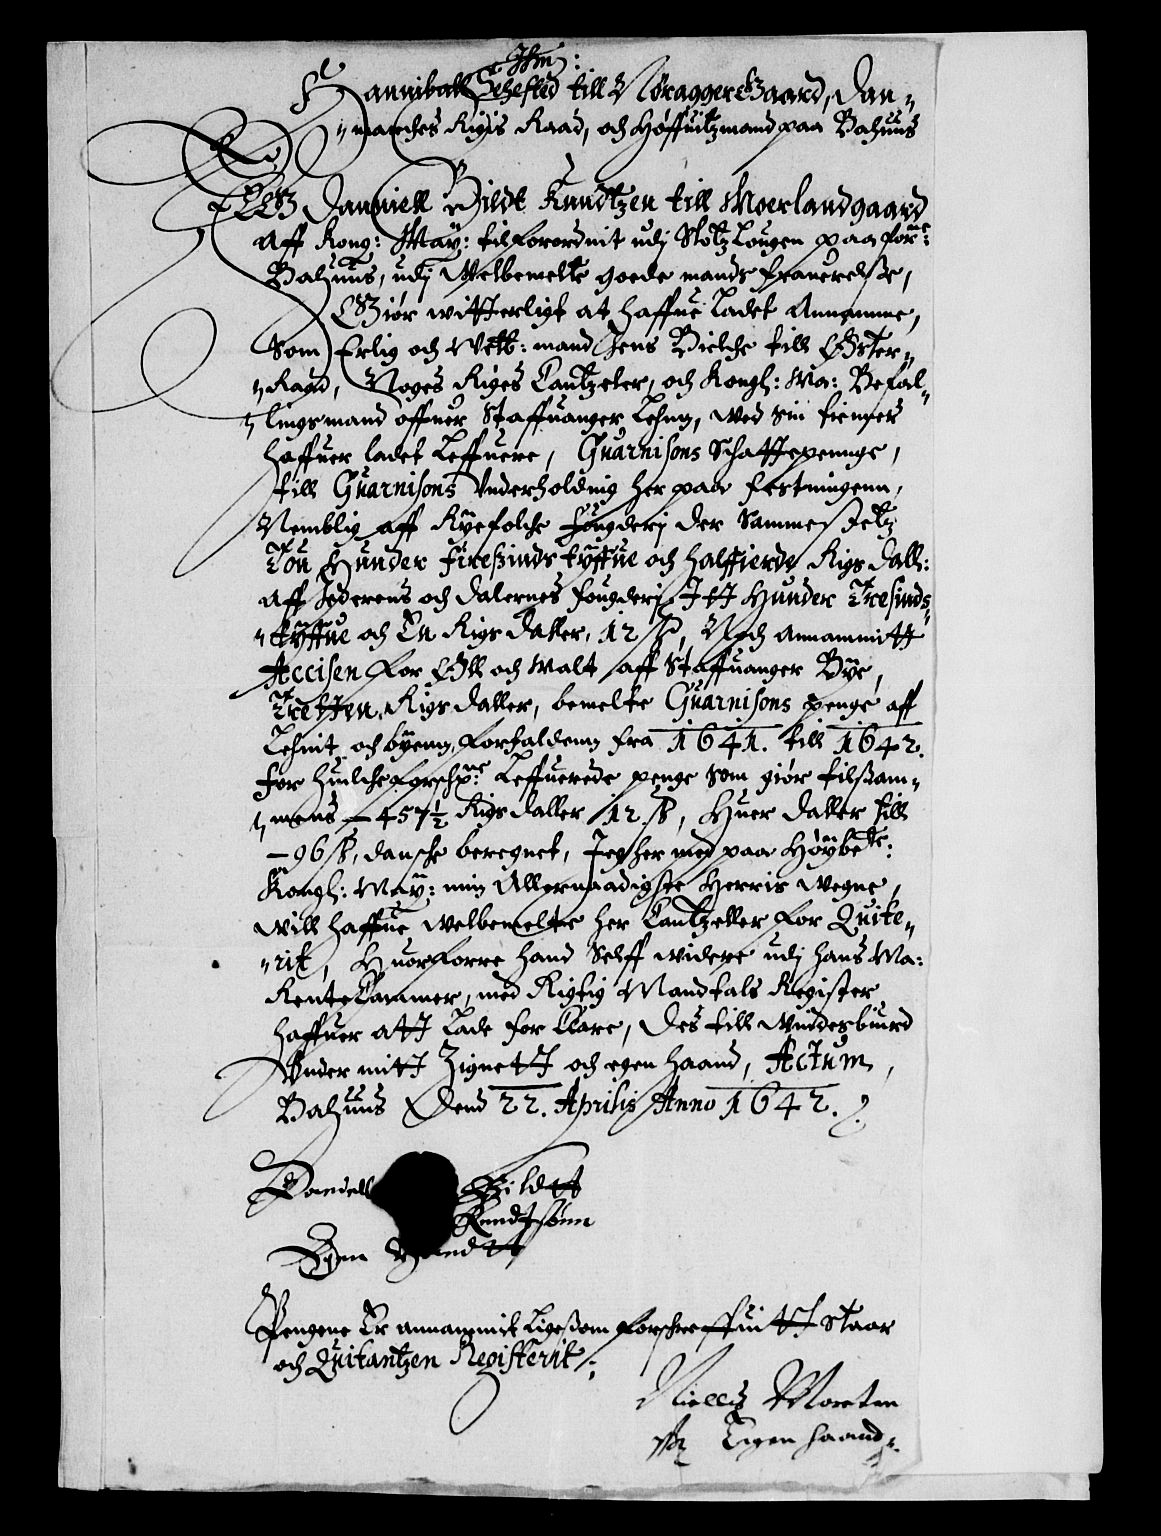 Hanniball Sehested till Nøraggergaard, Dan¬
¬marches Rigis Raad, och Høffuitzmand paa Bahuus
Daniell Bildt Knudtzen till Moerlandgaard
Aff Kong: May: tilforordnit udj Slotz Lougen paa forne:
Bahuus, udj Welbemelte goede mands frauerelsse,
Giør witterligt at haffue Ladet Annamme,
Som Erlig och Velb: mand Jens Bielche till Øster¬
¬Raad, Noges Riges Cantzeler, och Kongl: Ma: Befal¬
¬lingsmand offuer Staffuanger Lehnn, Med Sin tienner
haffuer ladet Leffuere, Guarnisons Schattepennge,
till Guarnisons Vnderholdnig her paa festningenn,
Nemblig aff Ryefolche fougderj der Sammestetz
Tou Hunder firesinds tyffue och halffierde Rigs dall:
Aff Jederens och Dalernes fougderj Itt Hunder Tresinds
¬tyffue och En Rigs daller, 12 ß, Noch Annammitt
Accisen for Øll och Malt aff Staffuanger Bye,
Tretten Rigs daller, bemelte Guarnisons penge aff
Lehnit och byenn, forfaldenn fra 1641. till 1642.
for huilche forschrne: Leffuerede penge Som giør tilsam¬
¬mens – 457½ Rigsdaller 12 ß, Huer daller till
– 96 ß, dansche beregnet, Jeg her med paa Høybete:
Kongl: May: min Allernaadigste Herris Wegne,
Will haffue Welbemelte her Cantzeller for Quite¬
¬rit, Huorforre hand Selff widere udj hans Ma:
RenteCammer, med Rigtig Mandtals Register
haffuer att Lade for Clare, Des till Windesbiurd
Vnder mitt Zignett och egen Haand, Actum,
Bahuus Dend 22. Aprilis Anno 1642.
Daniell Bildtt
Knudtsønn
Egen Haandtt
Pengene Er annammit Ligesom forschreffuitt Staar
och Quitantzen Registerit
Niellss Morten
Eigen haand